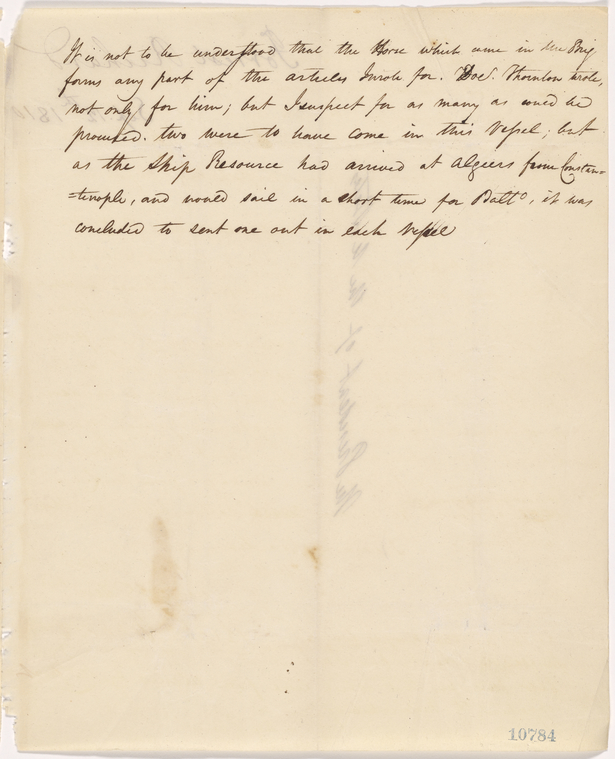 It is not to be understood that the Horse which came in the Brig
forms any part of the articles I wrote for. Doct. Thornton wrote,
not only for him; but I suspect for as many as could be
procured. two were to have come in this Vessel; but
as the Ship Resource had arrived at Algiers from Constan-
=tinople, and would sail in a short time for Balto, it was
concluded to sent one out in each Vessel
10784